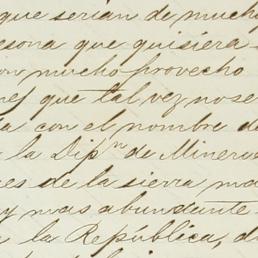 que serían de mucho
esona que quisiera
con mucho provecho
que tal vez no se
con el nombre de
a la Dipn de Minero
es de la sierra ma
y mas abundante
a la República, d